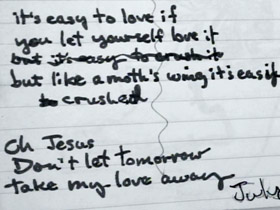 it's easy to love if
you let yourself love it
but it's easy to crush it
but like a moth's wing it's easily
to crushed
Oh Jesus
Don't let tomorrow
take my love away